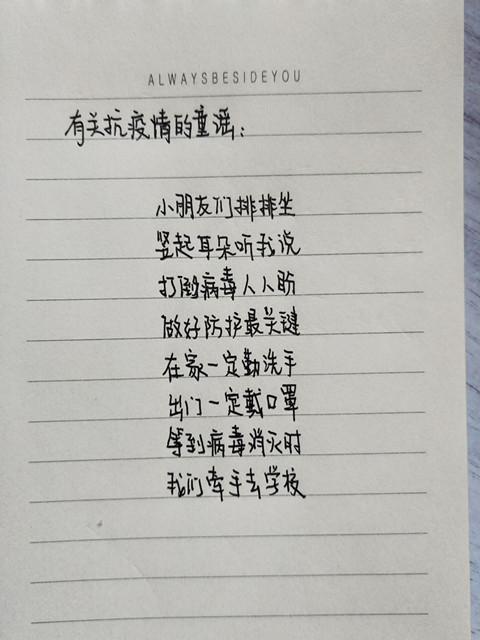 ALWAYSBESIDEYOU
有关抗疫情的童谣：
小朋友们排排坐
竖起耳朵听我说
打倒病毒人人盼
做好防护最关键
在家一定勤洗手
出门一定戴口罩
等到病毒消灭时
我们牵手去学校